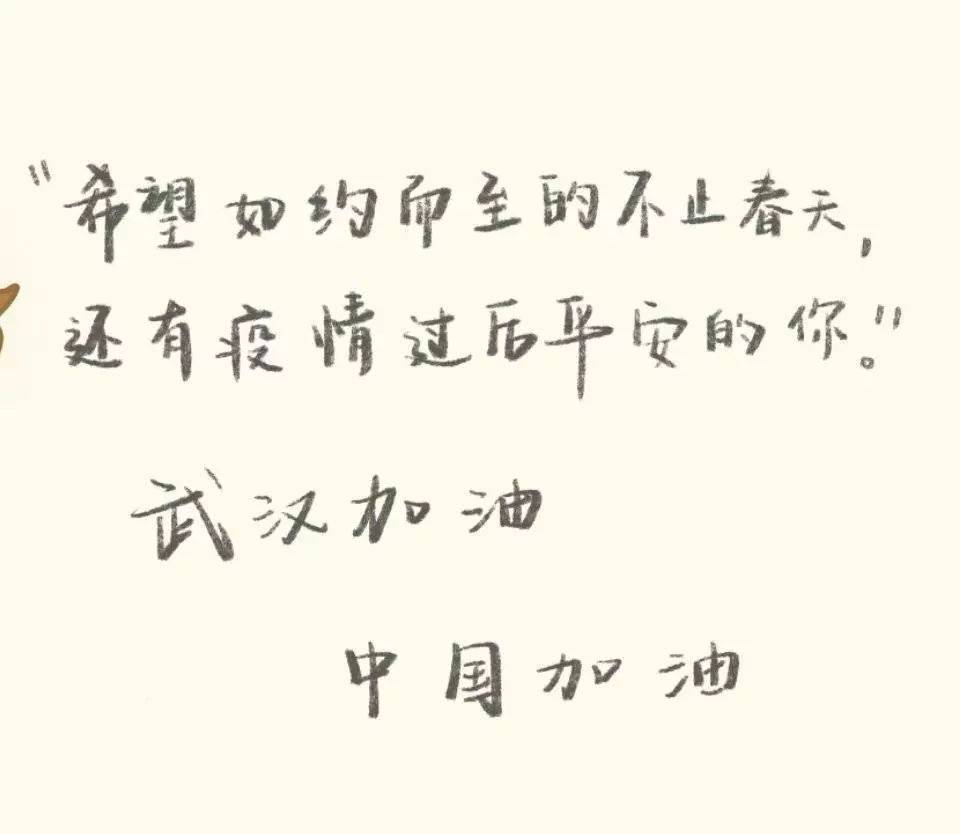 “希望如约而至的不止春天,
还有疫情过后平安的你。”
武汉加油
中国加油